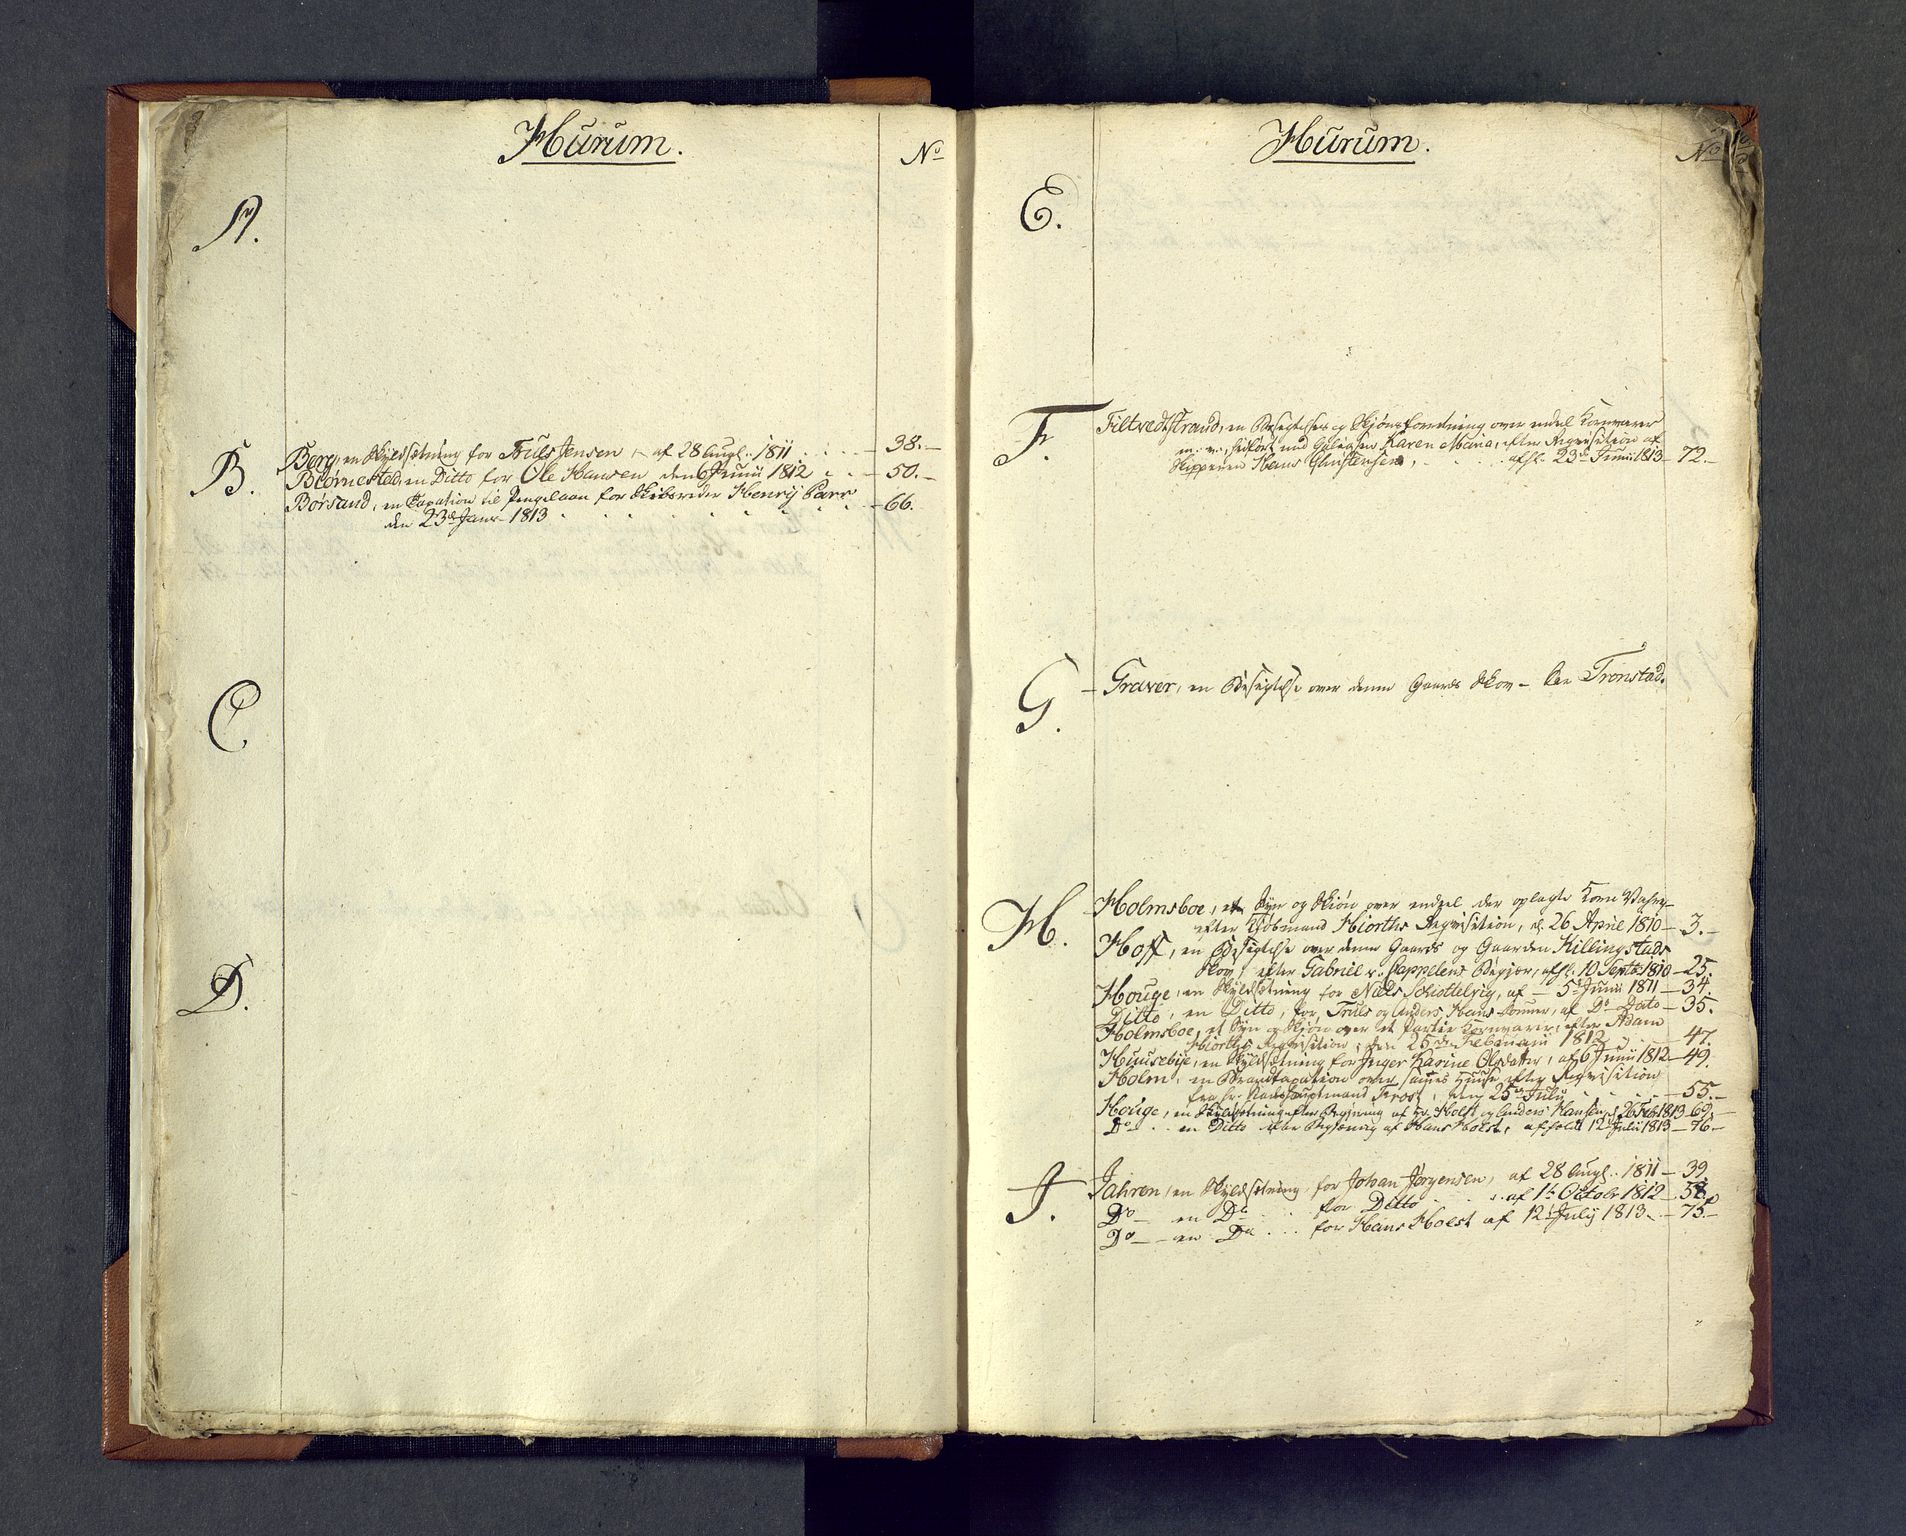 Hurum.
No
A.
B.
Berg, en Skyldsætning for Truls Jensen, af 28 Augl. 1811 38.
Biörnestad, en Ditto for Ole Hansen den 6 Junii 1812 50.
Börsand, en Taxation til Pengelaan for Skibsreder Henry Parr
den 23de Janr 1813 66.
C.
D.
Hurum.
No
E.
F.
Filtvedtstrand, en Besigtelses og Skjönsforretning over endeel Kornvarer
m. v., hidført med Galeasen Karen Maria, efter Reqvisition af
Skipperen Hans Christensen, afh. 23de Junii 1813 72.
G.
Graver, en Besigtelse over denne Gaards Skov - See Tronstad.
H.
Holmsboe, et Syn og Skiön over endeel der oplagte Korn Vahre
efter Kjöbmand Hiorths Reqvisition, d. 26 April 1810 3.
Hoff, en Besigtelse over denne Gaards og Gaarden Killingstads
Skov, efter Gabriel v. Cappelens Begjær, afh. 10 Septbr 1810 25.
Houge, en Skyldsætning for Niels Schottelvig, af 5t Junii 1811 34.
Ditto, en Ditto, for Truls og Anders Hans Sönner, af Do Dato 35.
Holmsboe, et Syn og Skjön over et Partie Kornvarer, efter Adam
Hiorths Reqvisition, den 25de Februarii 1812 47.
Huusebye, en Skyldsætning for Inger Karine Olsdatter, af 6 Junii 1812 49.
Holm, en Brandtaxation over sammes Huuse efter Reqvisition
fra Hr. Hauptmand Frost, den 25de July 55.
Houge, en Skyldsætning efter Begjæring af Hr. Holst og Anders Hansen, d. 26 Febr 1813 69.
Do en Ditto efter Begjæring af Hans Holst, afholdt 12t Julii 1813 76.
J.
Jahren, en Skyldsætning for Johan Jörgensen, af 28 Augl. 1811 39.
Do en Do for Ditto af 1t Octobr 1812 58.
Do en Do for Hans Holst af 12t July 1813 75.